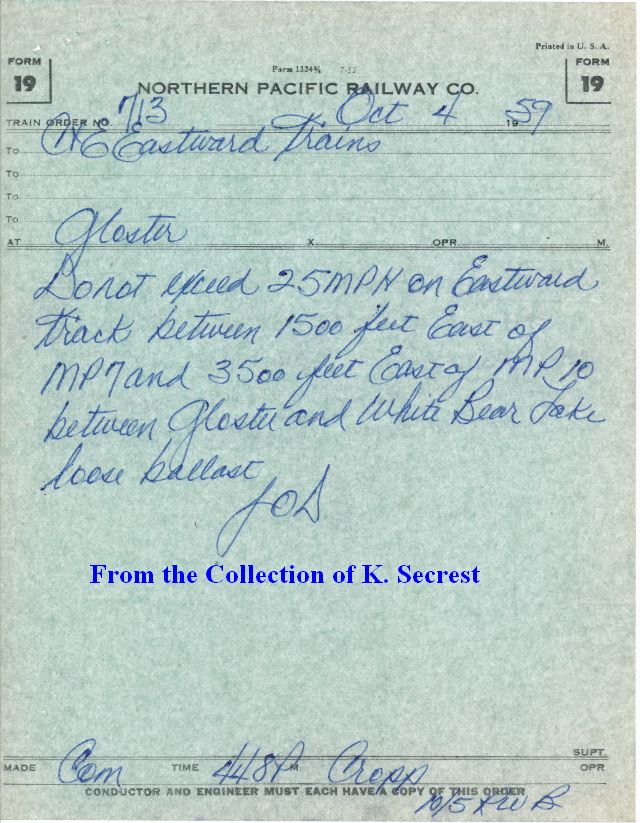 Printed in U. S. A.
FORM 19
Form 1324¾ 7-52
FORM 19
NORTHERN PACIFIC RAILWAY CO.
TRAIN ORDER NO. 713 Oct 4 1959
To C&E Eastward Trains
To
To
To
AT Gloster X OPR. M.
Do not exceed 25 MPH on Eastward
Track between 1500 feet East of
MP 7 and 3500 feet East of MP 10
between Gloster and White Bear Lake
loose ballast
JOD
From the Collection of K. Secrest
SUPT.
MADE Com TIME 448 P M. Cropp OPR.
CONDUCTOR AND ENGINEER MUST EACH HAVE A COPY OF THIS ORDER
10/5